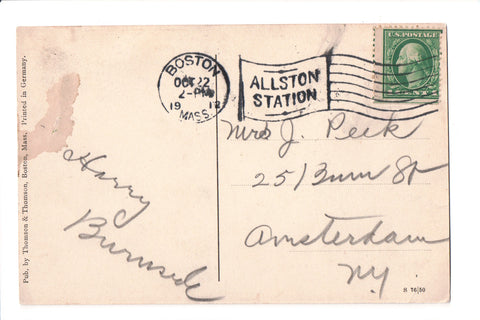 Pub. by Thomson & Thomson, Boston, Mass. Printed in Germany.
Harry
Burnside
BOSTON
OCT 22
2-PM
19 12
MASS.
ALLSTON
STATION
U.S. POSTAGE
Mrs J. Peek
25 St
Amsterdam
NY